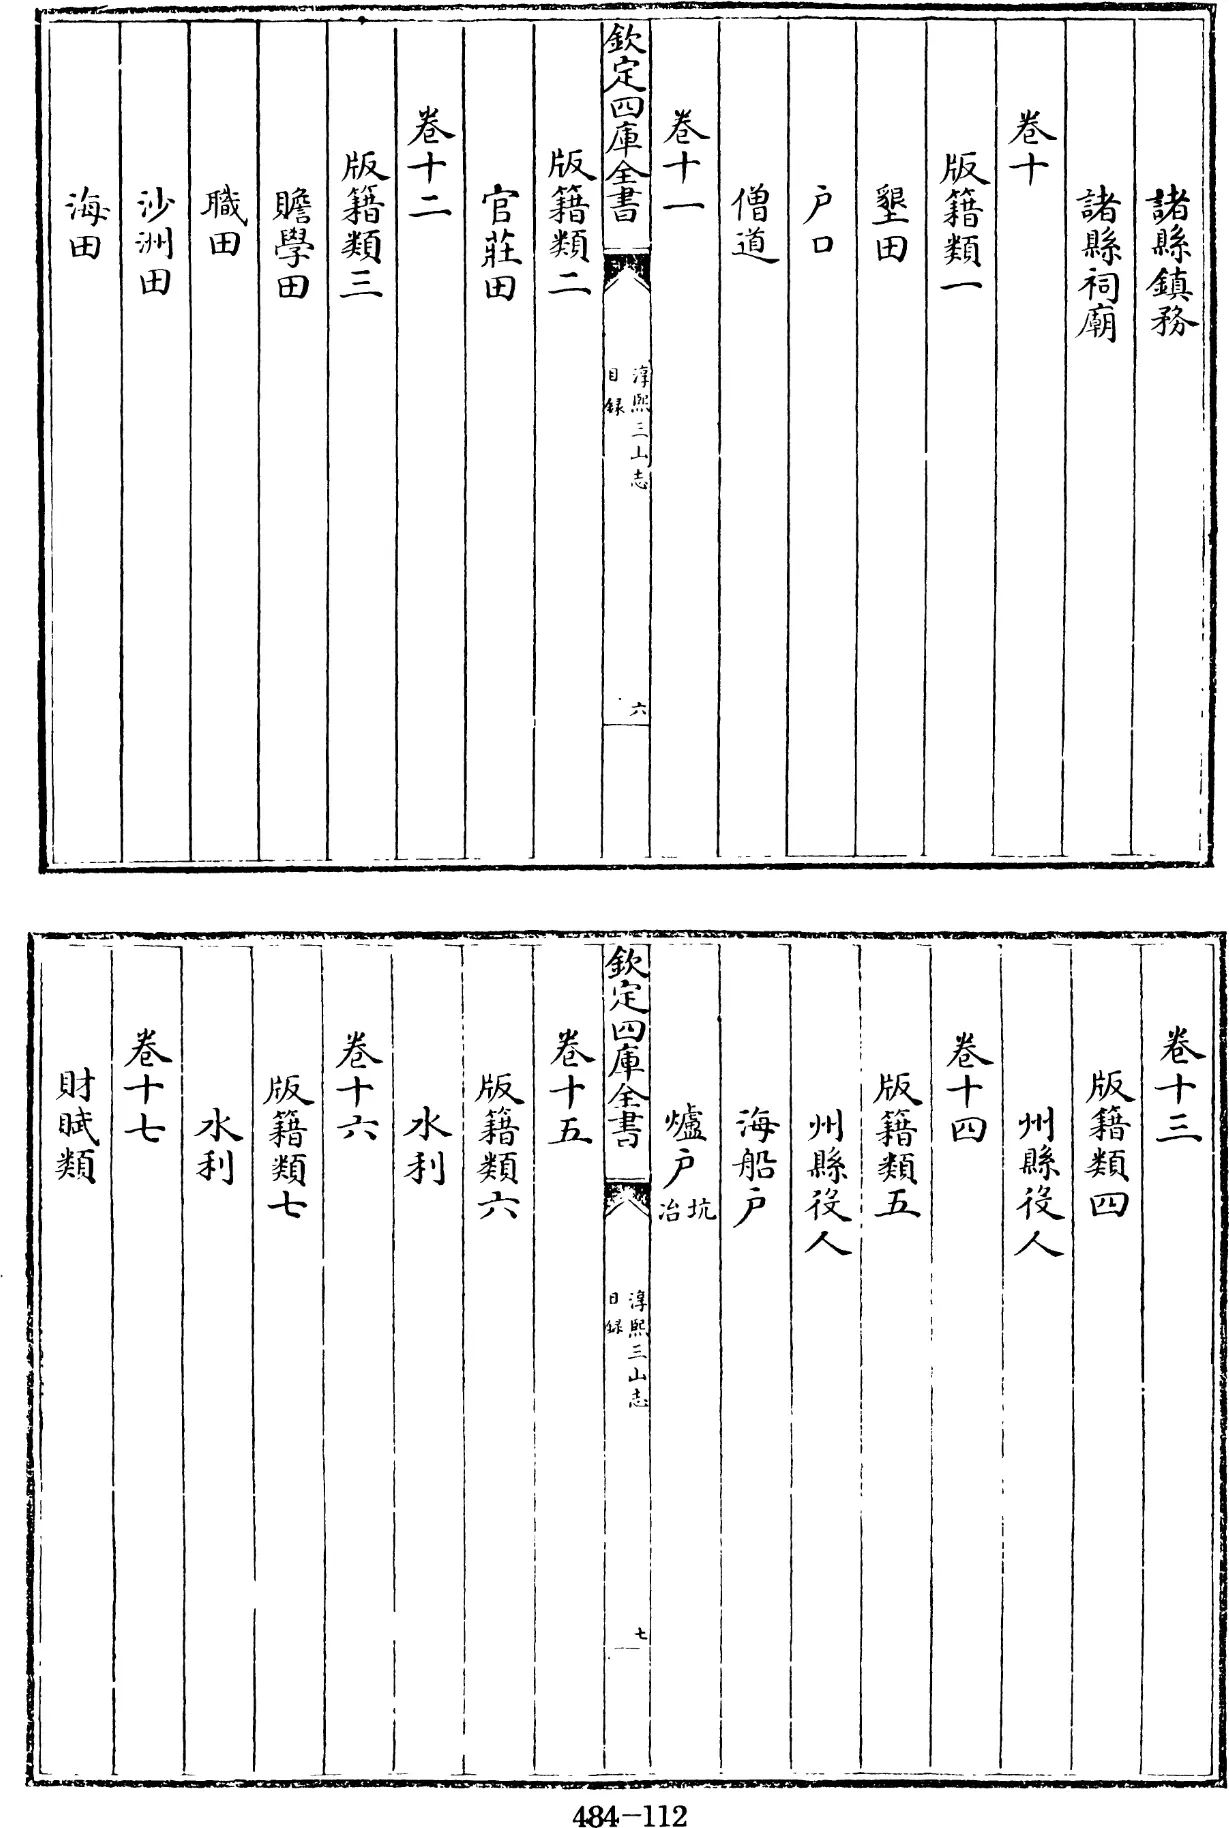 諸縣鎮務
諸縣祠廟
卷十
版籍類一
墾田
户口
僧道
卷十一
欽定四庫全書
淳熙三山志
目録
六
版籍類二
官莊田
卷十二
版籍類三
贍學田
職田
沙洲田
海田
卷十三
版籍類四
州縣役人
卷十四
版籍類五
州縣役人
海船户
爐户坑冶
欽定四庫全書
淳熙三山志
目録
七
卷十五
版籍類六
水利
卷十六
版籍類七
水利
卷十七
財賦類
484-112